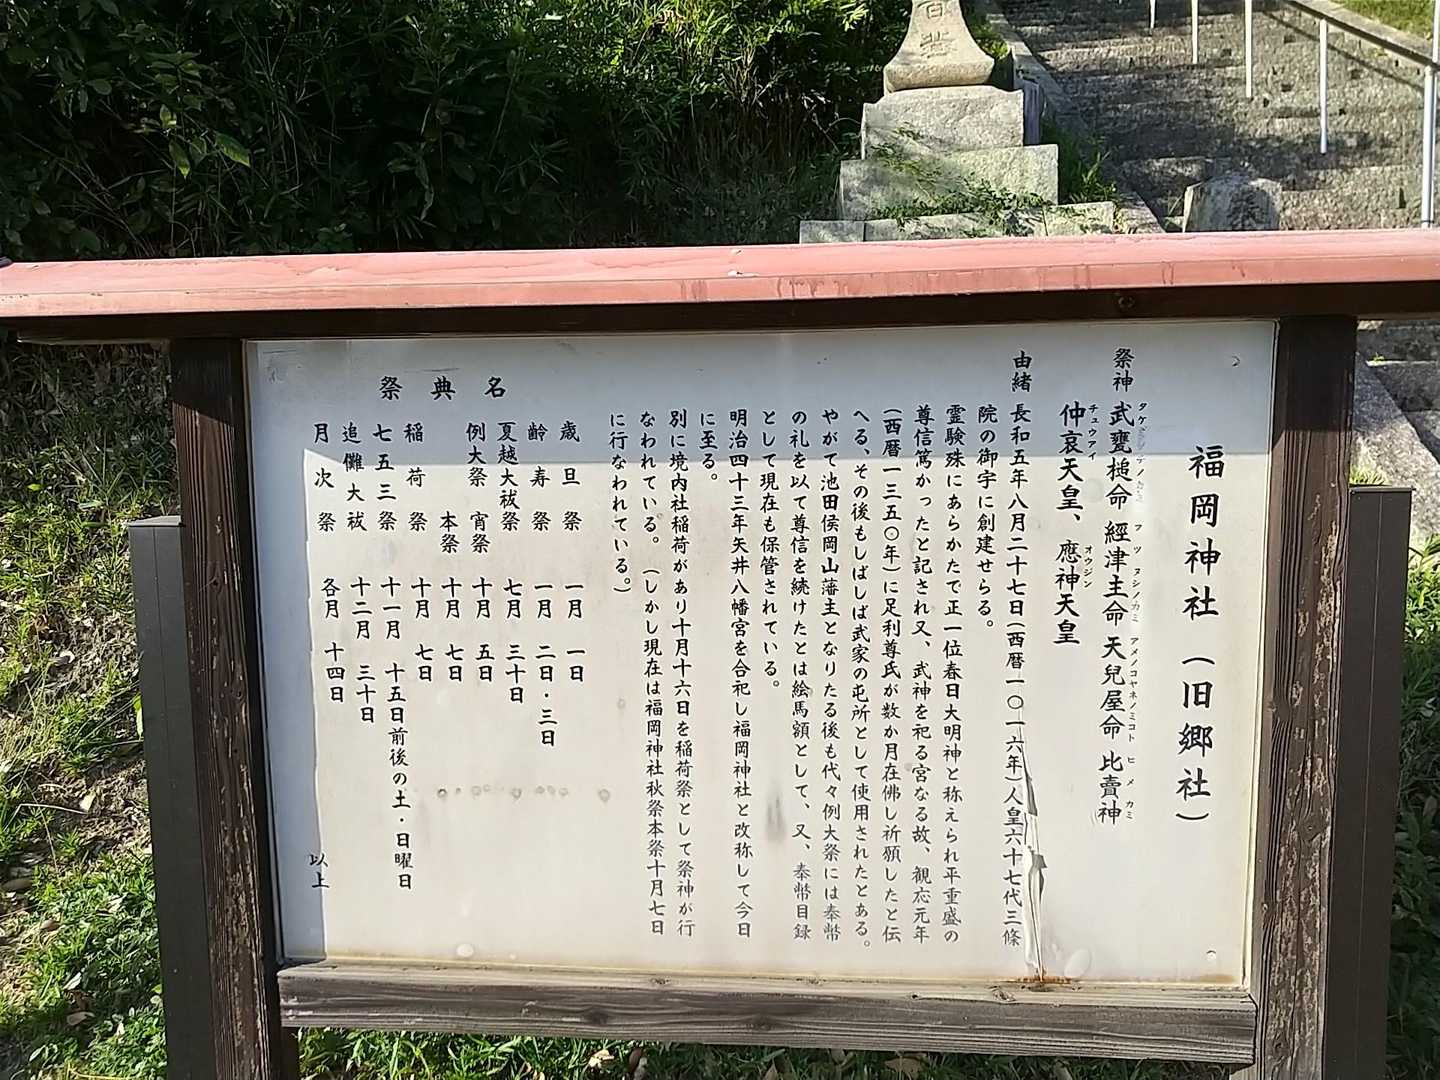 福岡神社（旧郷社）
祭神 武甕槌命 經津主命 天兒屋命 比賣神
フツヌシノカミ アメノコヤネノミコト ヒメカミ
仲哀天皇、應神天皇
チュウアイ オウジン
由緒 長和五年八月二十七日（西暦一〇一六年）人皇六十七代三條
院の御宇に創建せらる。
霊験殊にあらかたで正一位春日大明神と称えられ平重盛の
尊信篤かったと記され又、武神を祀る宮なる故、観応元年
（西暦一三五〇年）に足利尊氏が数か月在佛し祈願したと伝
へる、その後もしばしば武家の屯所として使用されたとある。
やがて池田侯岡山藩主となりたる後も代々例大祭には奉幣
の礼を以て尊信を続けたとは絵馬額として、又、奉幣目録
として現在も保管されている。
明治四十三年矢井八幡宮を合祀し福岡神社と改称して今日
に至る。
別に境内社稲荷があり十月十六日を稲荷祭として祭神が行
なわれている。（しかし現在は福岡神社秋祭本祭十月七日
に行なわれている。）
祭典名
歳旦祭 一月 一日
齢寿祭 一月 二日・三日
夏越大祓祭 七月 三十日
例大祭 宵祭 十月 五日
本祭 十月 七日
稲荷祭 十月 七日
七五三祭 十一月 十五日前後の土・日曜日
追儺大祓 十二月 三十日
月次祭 各月 十四日
以上